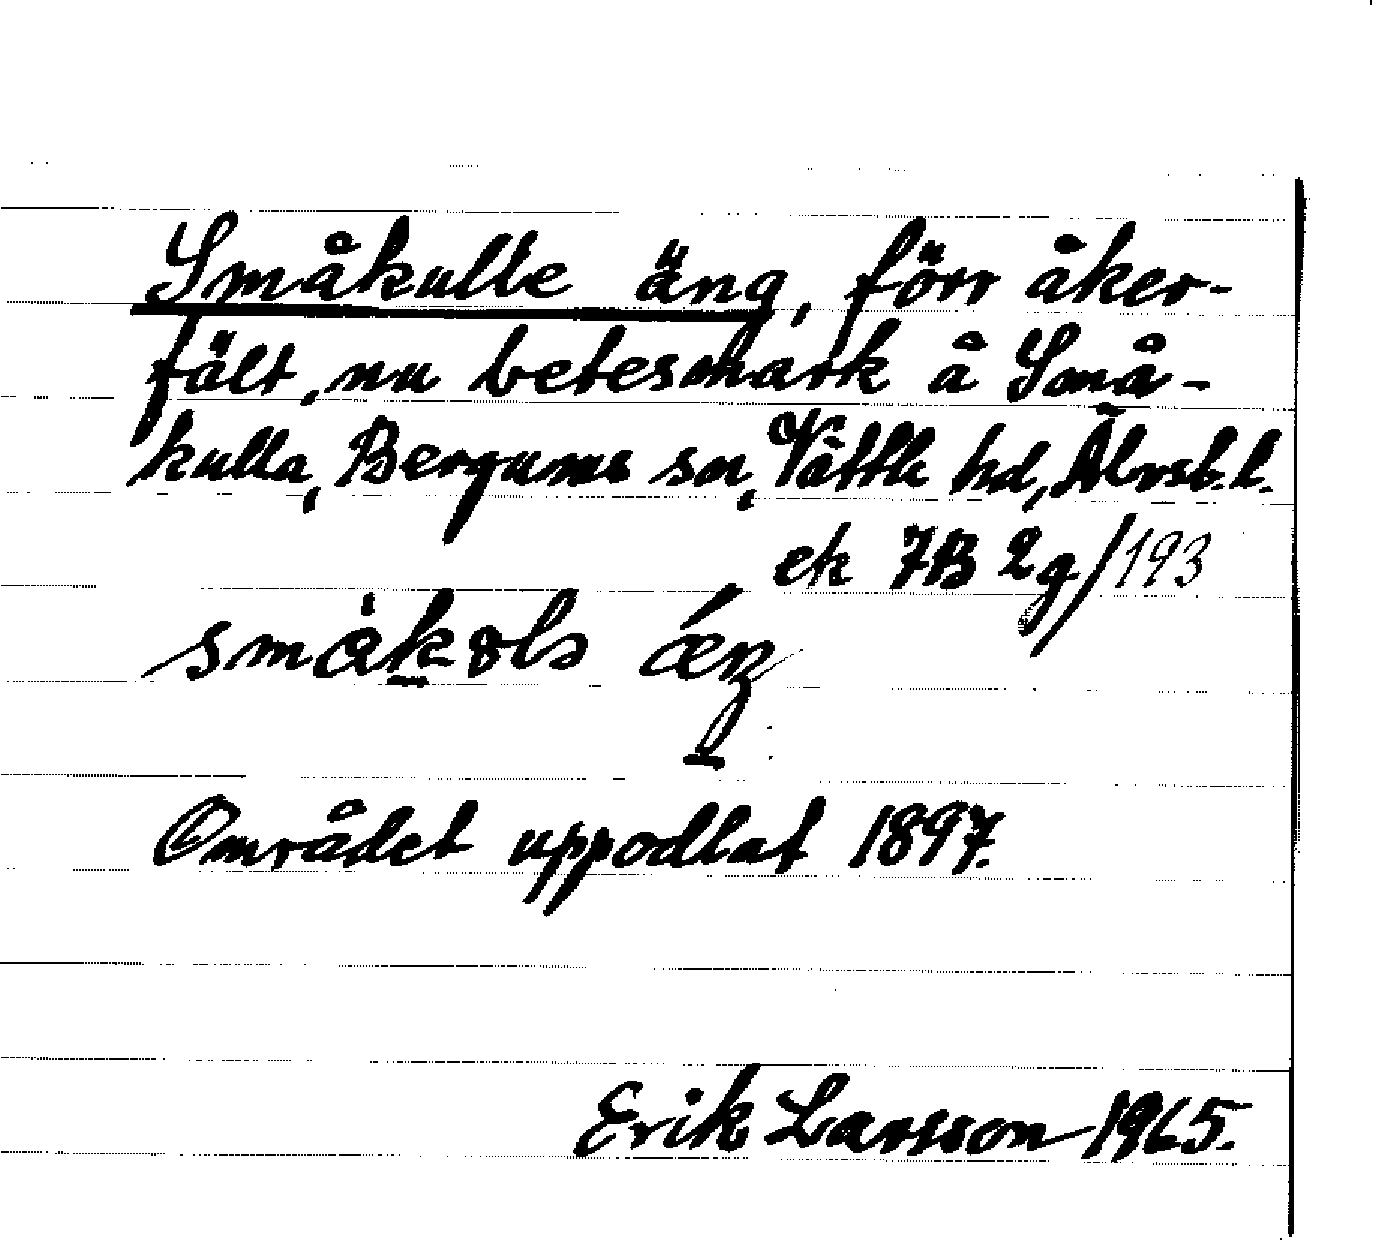 Småkulle äng, förr åker-
fält, nu betesmark å Små-
kulla, Bergums sn, Vättle hd, Älvsb. l.
ek 7B 2g/193
Området uppodlat 1897.
Erik Larsson 1965.